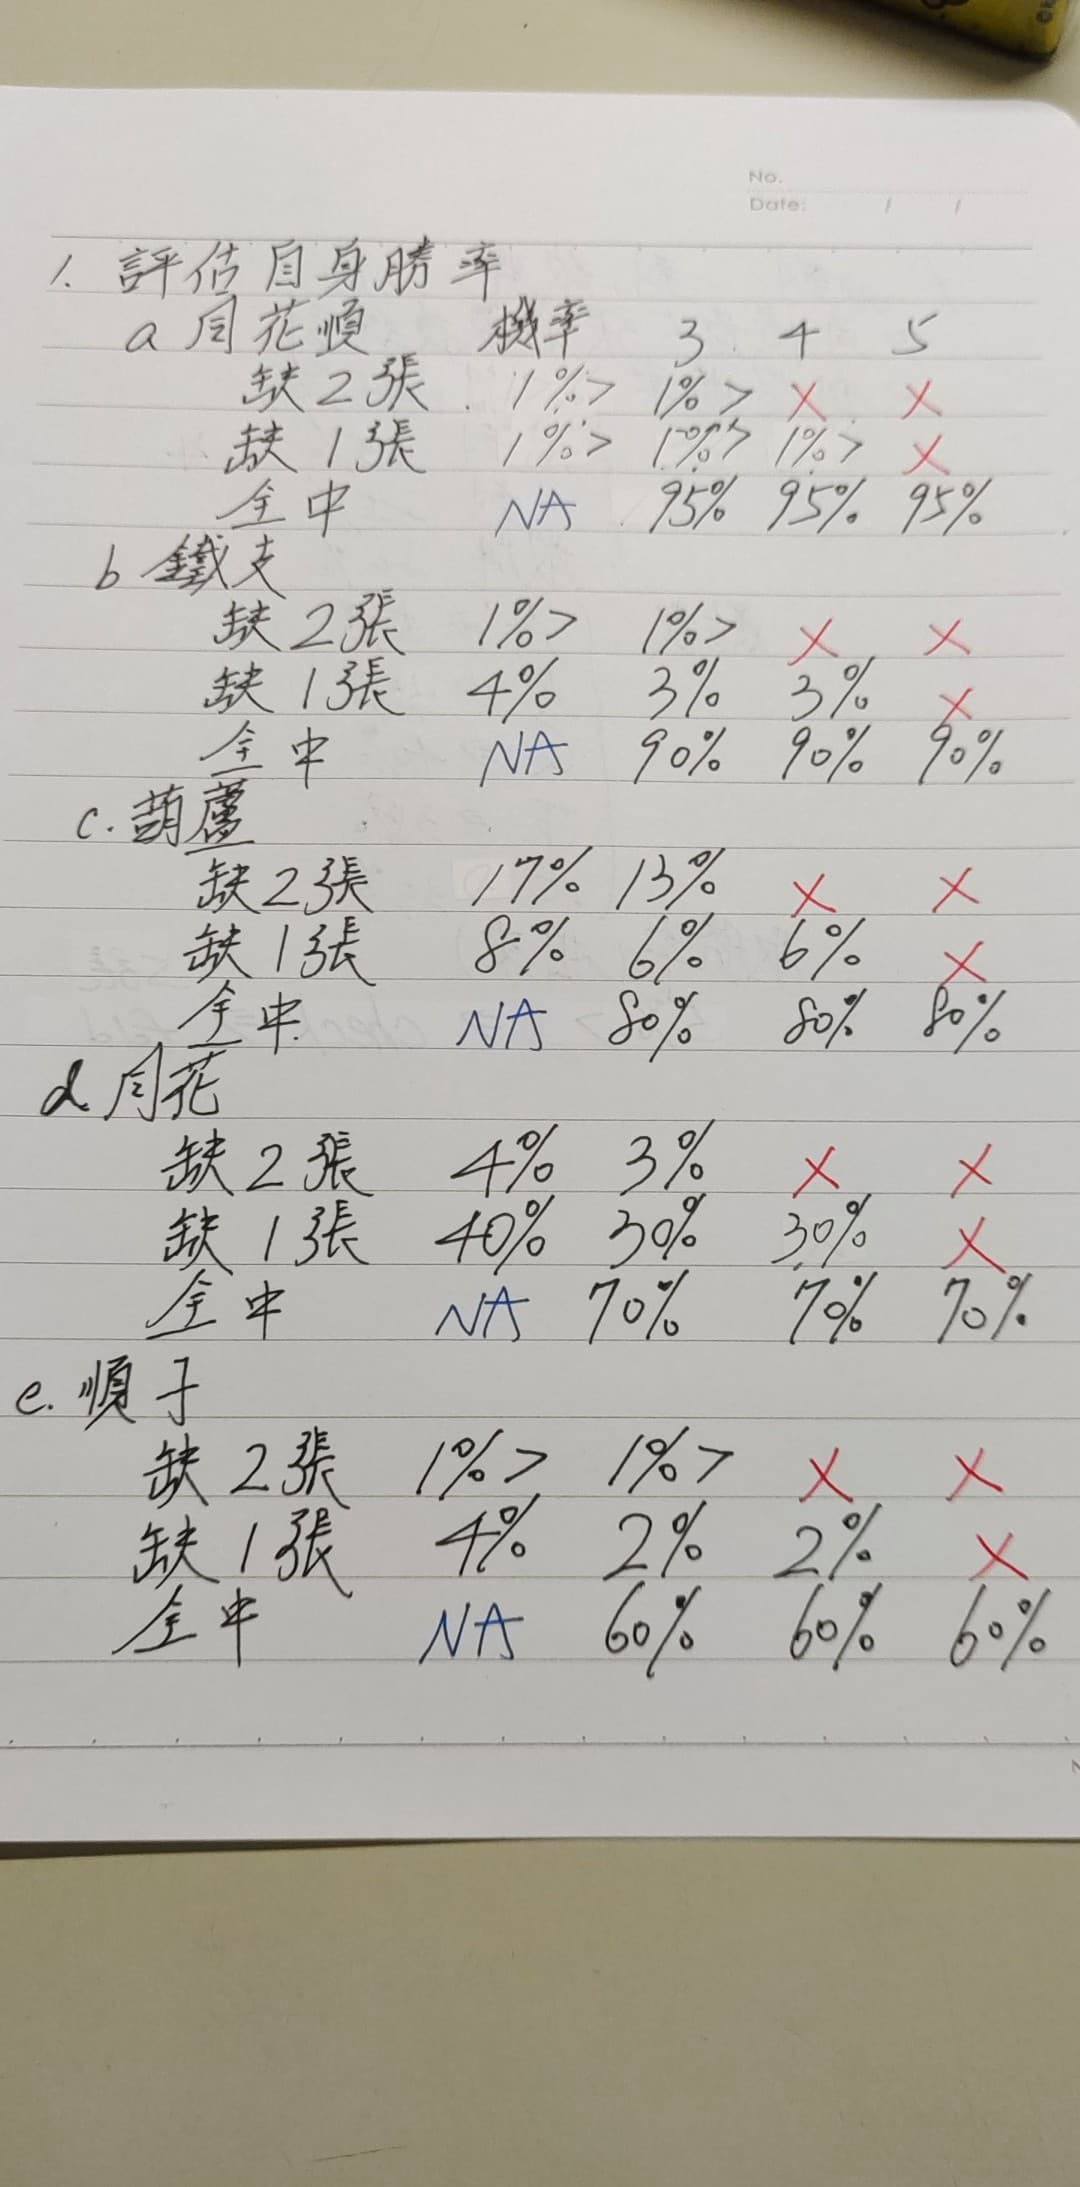 No.
Date: / /
1. 評估自身勝率
a 同花順 機率 3 4 5
缺2張 1%> 1%> X X
缺1張 1%> 1%> 1%> X
全中 NA 95% 95% 95%
b 鐵支
缺2張 1%> 1%> X X
缺1張 4% 3% 3% X
全中 NA 90% 90% 90%
c. 葫蘆
缺2張 17% 13% X X
缺1張 8% 6% 6% X
全中 NA 80% 80% 80%
d. 同花
缺2張 4% 3% X X
缺1張 40% 30% 30% X
全中 NA 70% 70% 70%
e. 順子
缺2張 1%> 1%> X X
缺1張 4% 2% 2% X
全中 NA 60% 60% 60%